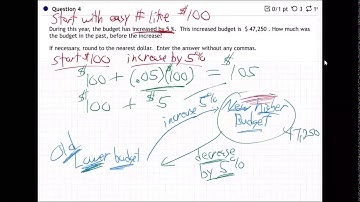 Question 4
0/1 pt
Start with easy # like $100
During this year, the budget has increased by 5 %. This increased budget is $ 47,250. How much was
the budget in the past, before the increase?
If necessary, round to the nearest dollar. Enter the answer without any commas.
start $100 increase by 5%
$100 + (.05)($100) = $105
$100 + $5
increase 5%
New Higher
Budget
47,250
Old
Lower budget
decrease
by 5%